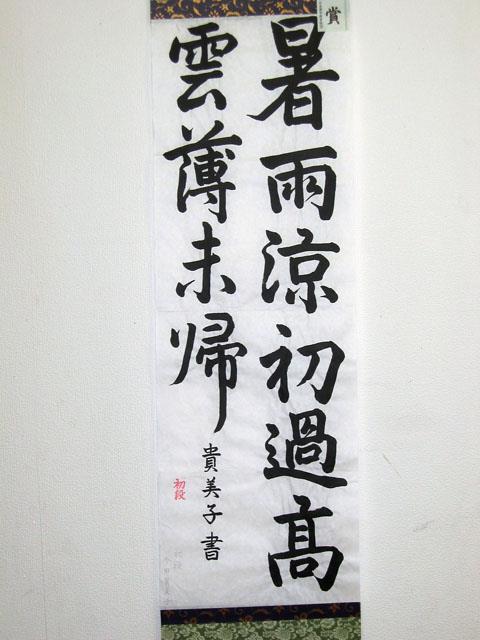 賞
暑雨涼初過髙
雲薄未帰
貴美子書
初段